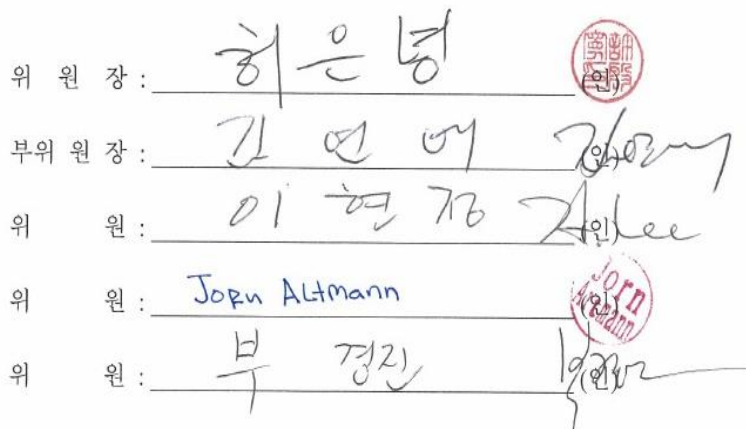 위 원 장 : 허 은 녕 (인)
부위 원 장 : 김 연 배 (인)
위 원 : 이 현 정 (인) Lee
위 원 : Jorn Altmann (인) Jorn Altmann
위 원 : 부 경진 (인)